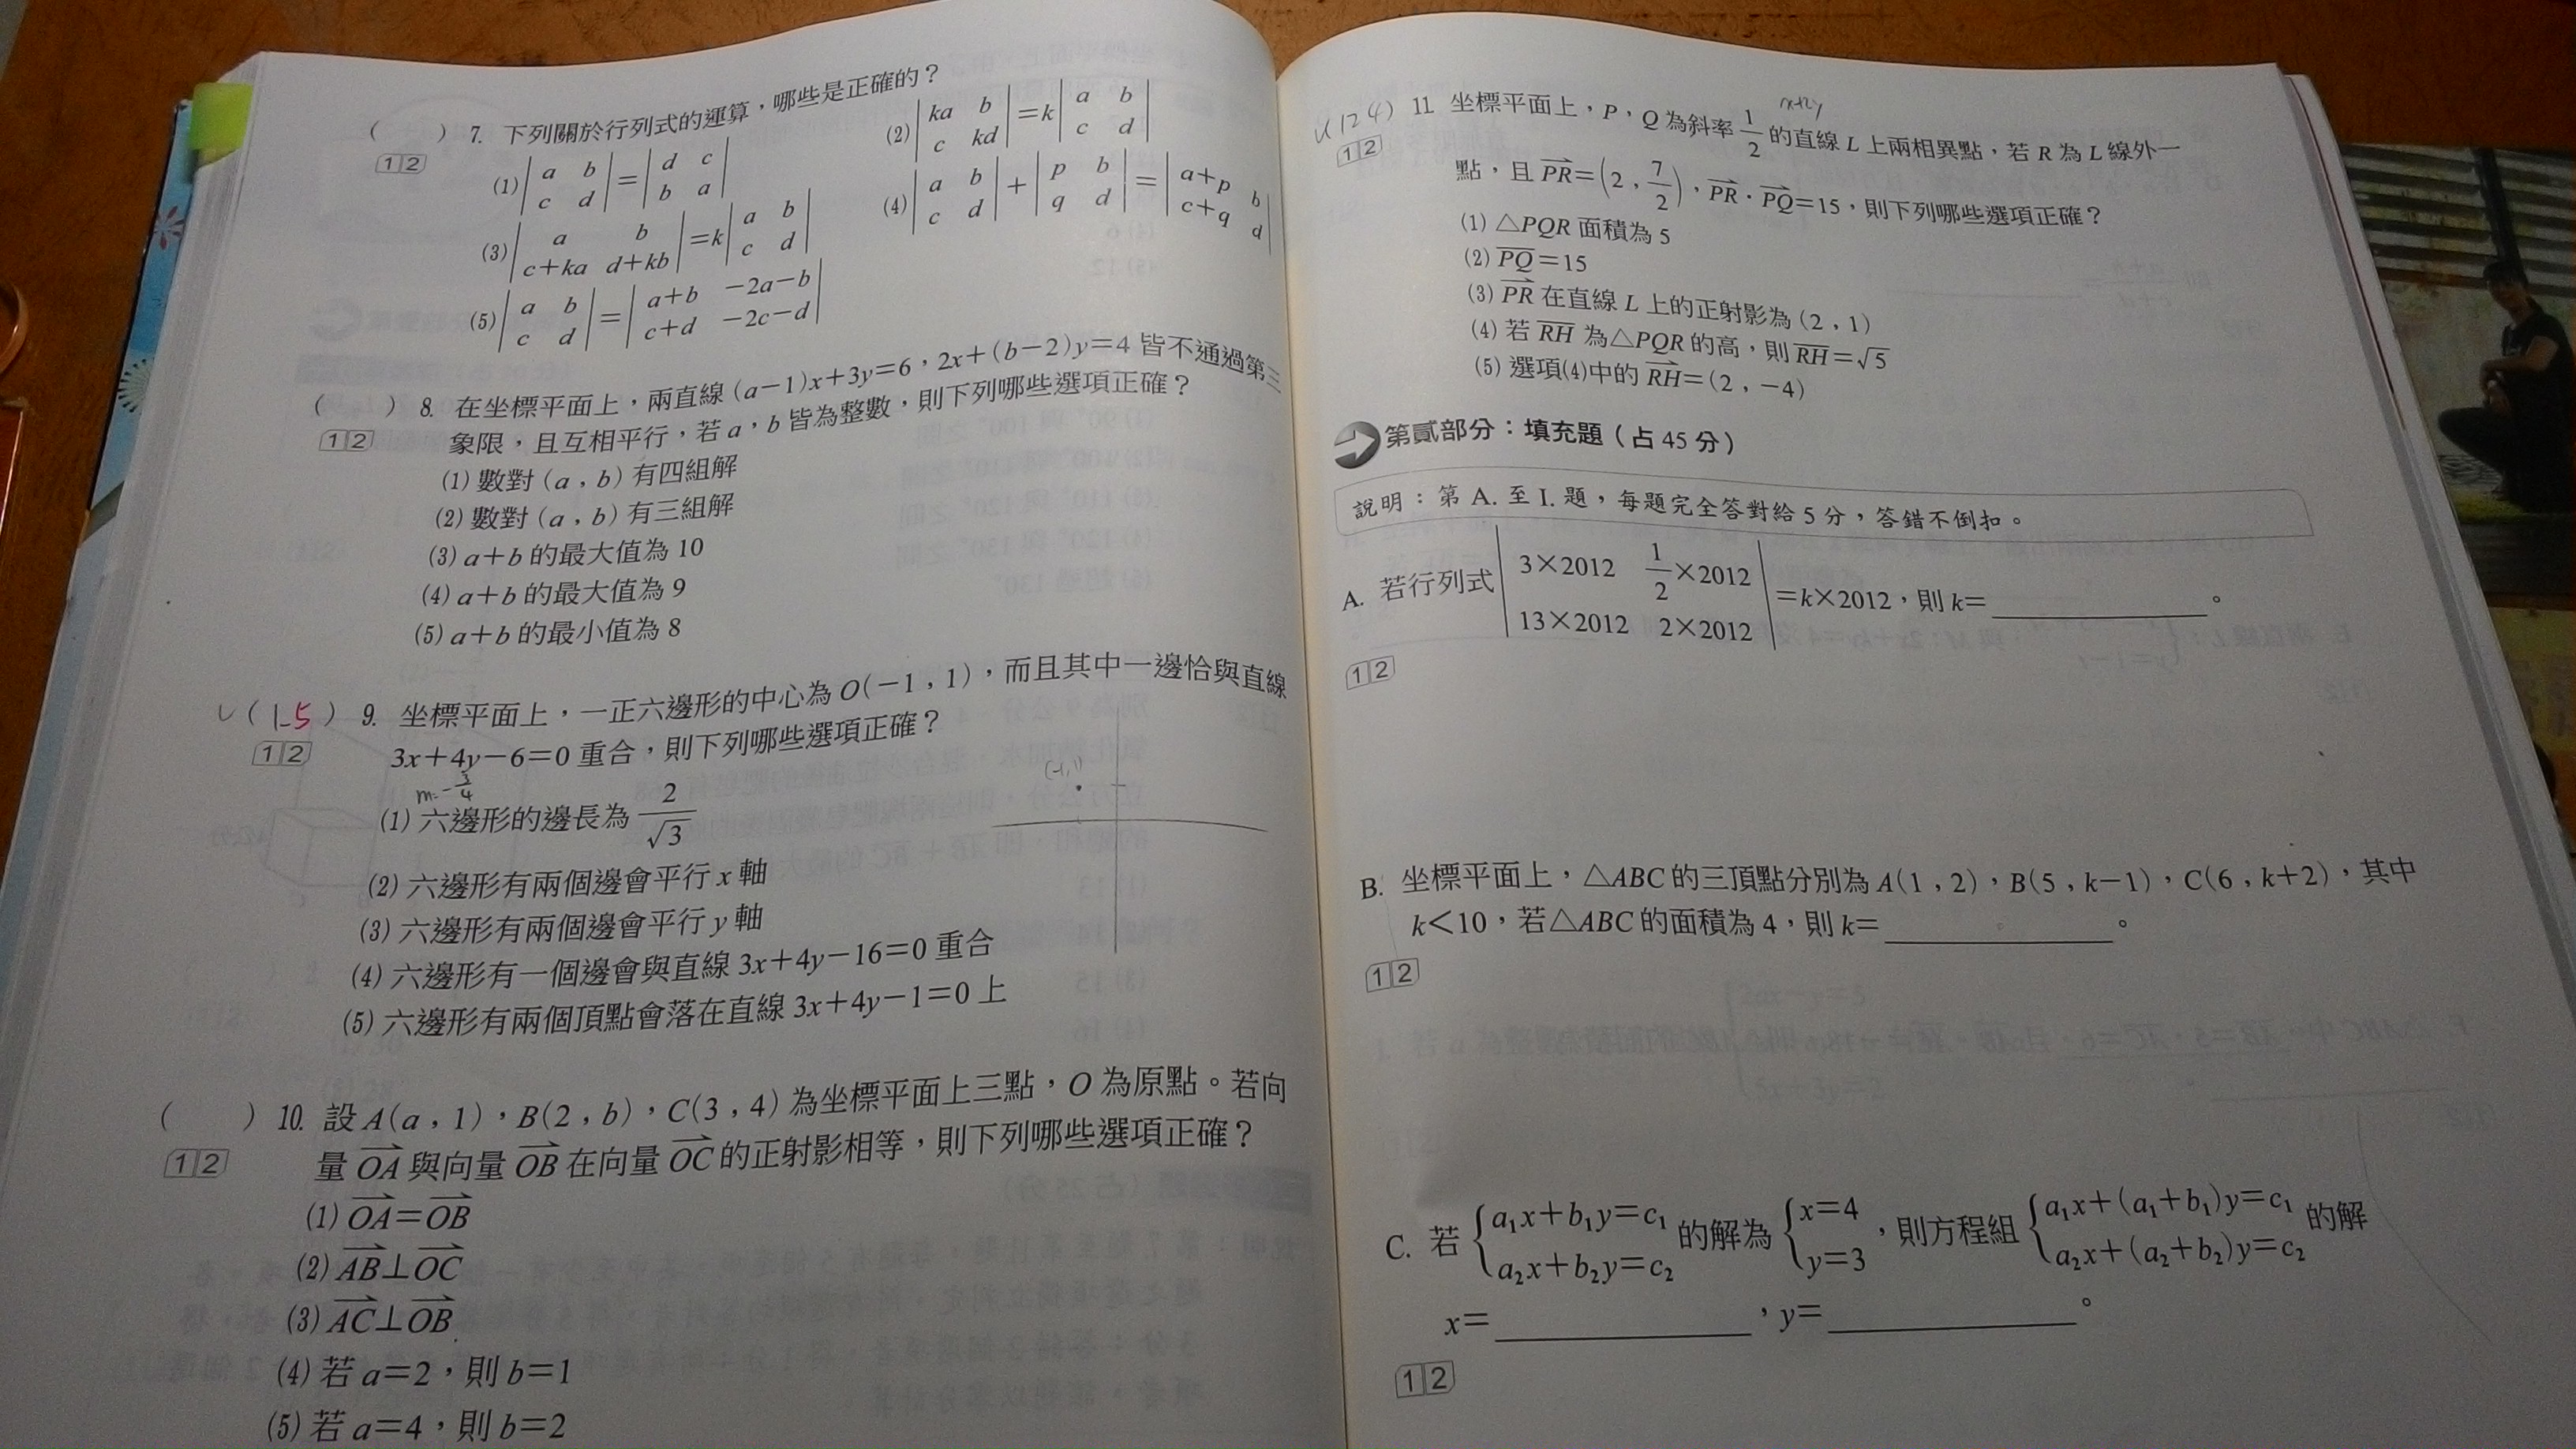 ( ) 7. 下列關於行列式的運算,哪些是正確的?
12
(1) | a b ; c d | = | d c ; b a |
(2) | ka b ; c kd | =k | a b ; c d |
(3) | a b ; c+ka d+kb | =k | a b ; c d |
(4) | a b ; c d | + | p b ; q d | = | a+p b ; c+q d |
(5) | a b ; c d | = | a+b -2a-b ; c+d -2c-d |
( ) 8. 在坐標平面上,兩直線(a-1)x+3y=6,2x+(b-2)y=4皆不通過第三
12 象限,且互相平行,若a,b皆為整數,則下列哪些選項正確?
(1) 數對(a,b)有四組解
(2) 數對(a,b)有三組解
(3) a+b的最大值為10
(4) a+b的最大值為9
(5) a+b的最小值為8
( 1 5 ) 9. 坐標平面上,一正六邊形的中心為O(-1,1),而且其中一邊恰與直線
12 3x+4y-6=0重合,則下列哪些選項正確?
m=-3/4
(-1,1)
(1) 六邊形的邊長為2/√3
(2) 六邊形有兩個邊會平行x軸
(3) 六邊形有兩個邊會平行y軸
(4) 六邊形有一個邊會與直線3x+4y-16=0重合
(5) 六邊形有兩個頂點會落在直線3x+4y-1=0上
( ) 10. 設A(a,1),B(2,b),C(3,4)為坐標平面上三點,O為原點。若向
12 量OA與向量OB在向量OC的正射影相等,則下列哪些選項正確?
(1) OA=OB
(2) AB⊥OC
(3) AC⊥OB
(4) 若a=2,則b=1
(5) 若a=4,則b=2
x+2y
(124) 11. 坐標平面上,P,Q為斜率1/2的直線L上兩相異點,若R為L線外一
12 點,且PR=(2,7/2),PR·PQ=15,則下列哪些選項正確?
(1) △PQR面積為5
(2) PQ=15
(3) PR在直線L上的正射影為(2,1)
(4) 若RH為△PQR的高,則RH=√5
(5) 選項(4)中的RH=(2,-4)
第貳部分:填充題(占45分)
說明:第A.至I.題,每題完全答對給5分,答錯不倒扣。
A. 若行列式 | 3×2012 1/2×2012 ; 13×2012 2×2012 | =k×2012,則k=______。
12
B. 坐標平面上,△ABC的三頂點分別為A(1,2),B(5,k-1),C(6,k+2),其中
k<10,若△ABC的面積為4,則k=______。
12
C. 若{a₁x+b₁y=c₁ ; a₂x+b₂y=c₂ 的解為{x=4 ; y=3,則方程組{a₁x+(a₁+b₁)y=c₁ ; a₂x+(a₂+b₂)y=c₂ 的解
x=______,y=______。
12